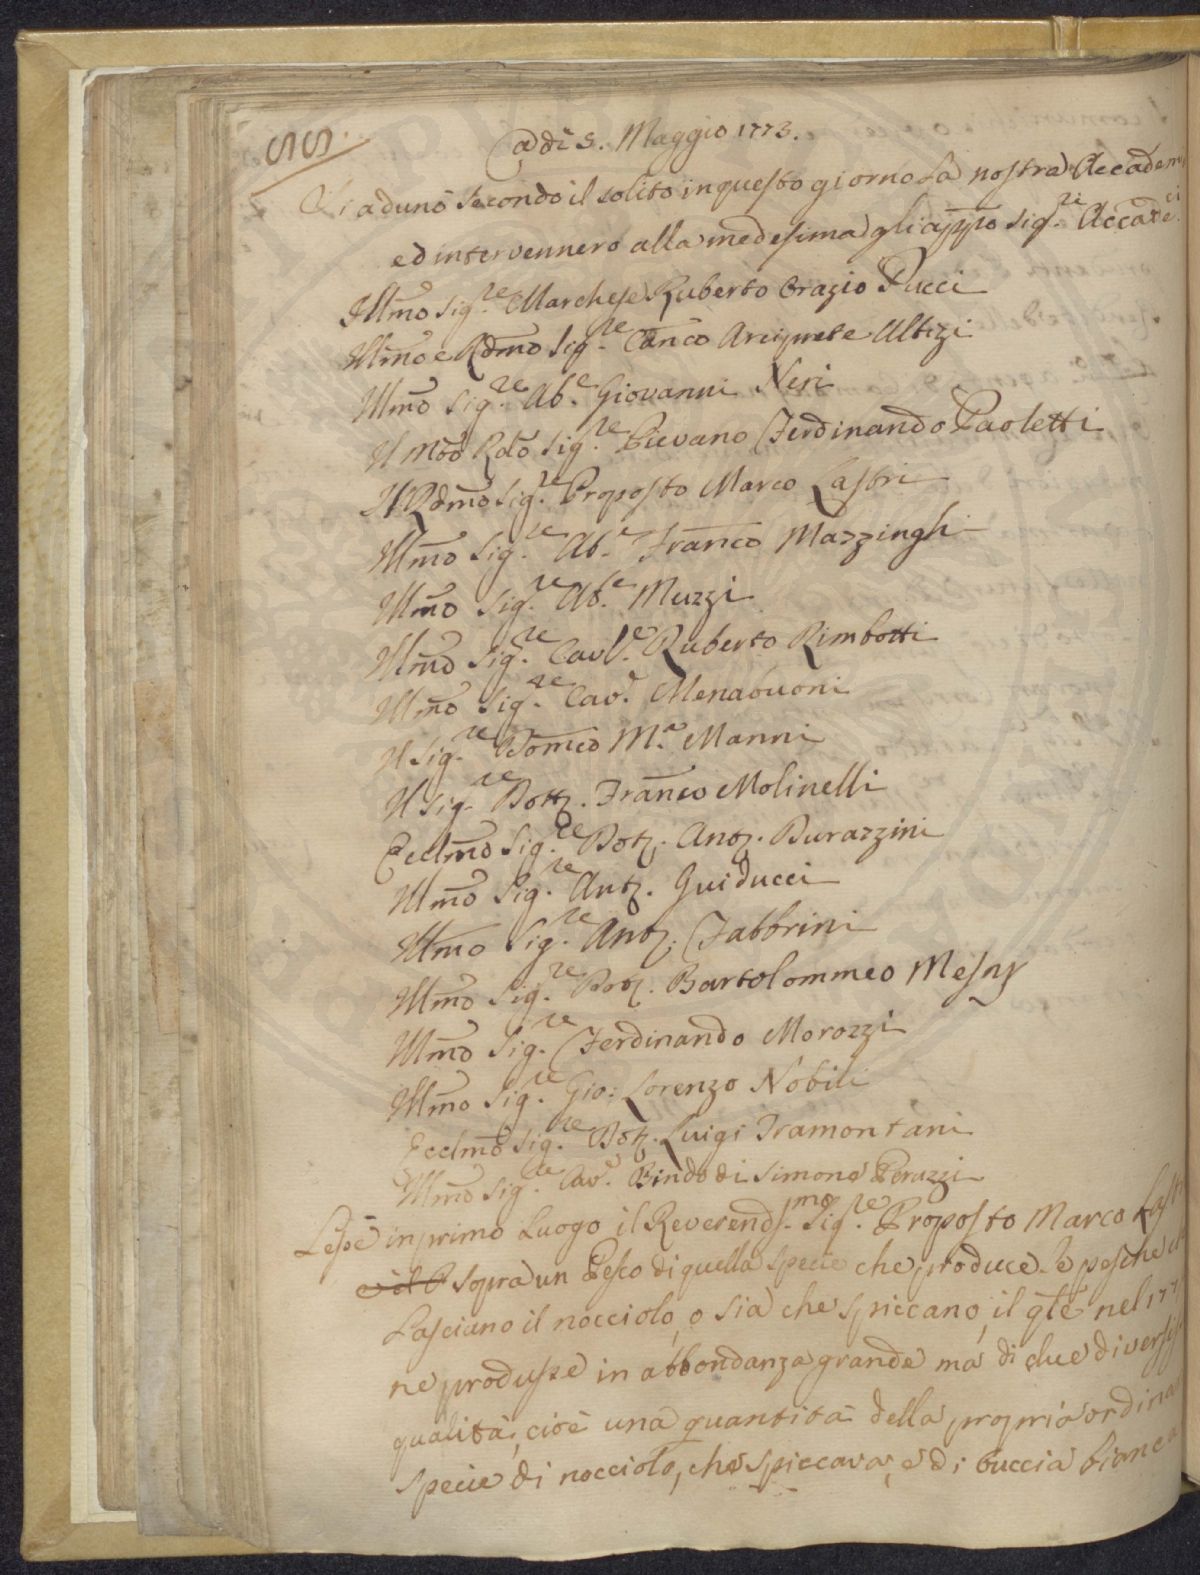 55.
Adì 5. Maggio 1773.
Si adunò secondo il solito in questo giorno la nostra Accadem
ed intervennero alla medesima gli apppo Sig.ri Accade.ci
Illmo Sig.re Marchese Ruberto Orazio Pucci
Illmo e Rdmo Sig.re Canco Arciprete Albizi
Illmo Sig.re Ab.e Giovanni Neri
Il Mto Rdo Sig.re Pievano Ferdinando Paoletti
Il Rdmo Sig.re Proposto Marco Lastri
Illmo Sig.re Ab.e Franco Mazzinghi
Illmo Sig.re Ab.e Muzzi
Illmo Sig.re Cavl.e Ruberto Rimbotti
Illmo Sig.re Cav.e Menabuoni
Il Sig.re Domco M.a Manni
Il Sig.re Dott. Franco Molinelli
Eccllmo Sig.re Dott. Ant. Durazzini
Illmo Sig.re Ant. Guiducci
Illmo Sig.re Ant. Fabbrini
Illmo Sig.re Dott. Bartolommeo Mesny
Illmo Sig.re Ferdinando Morozzi
Illmo Sig.re Gio: Lorenzo Nobili
Eccllmo Sig.re Dott. Luigi Tramontani
Illmo Sig.re Cav.e Bindo di Simone Peruzzi
Lesse in primo Luogo il Reverends.mo Sig.re Proposto Marco Last
sopra un Pesco di quella specie che produce le pesche ch
Lasciano il nocciolo, o sia che spiccano, il qle nel 177
ne produsse in abbondanza grande ma di due diversis
qualità, cioè una quantità della propria ordina
specie di nocciolo, che spiccava, e di buccia bianca